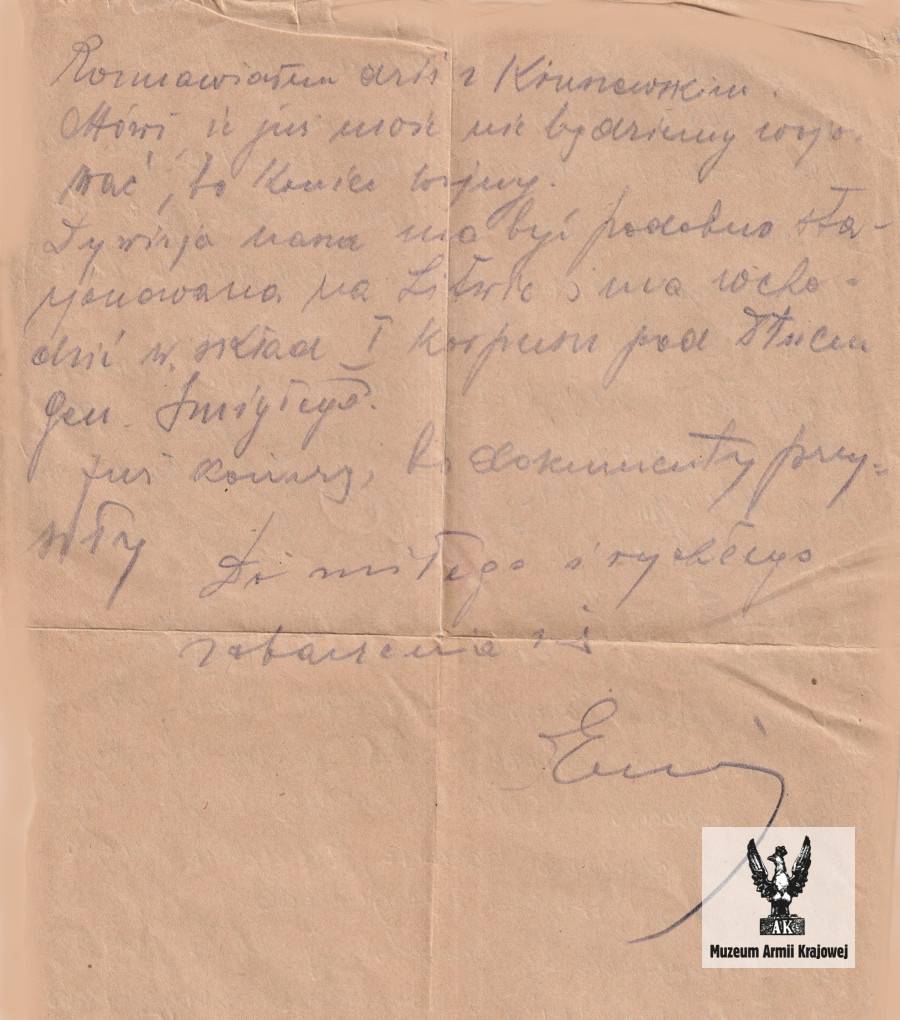 Rozmawiałem dziś z Kruszewskim.
Mówi, że już może nie będziemy wojo-
wać, bo koniec wojny.
Dywizja nasza ma być podobno sta-
cjonowana na Litwie i ma wcho-
dzić w skład I korpusu pod
gen. Śmigłego.
Już kończę, bo dokumenty przy=
szły Do miłego i rychłego
zobaczenia się
AK
Muzeum Armii Krajowej